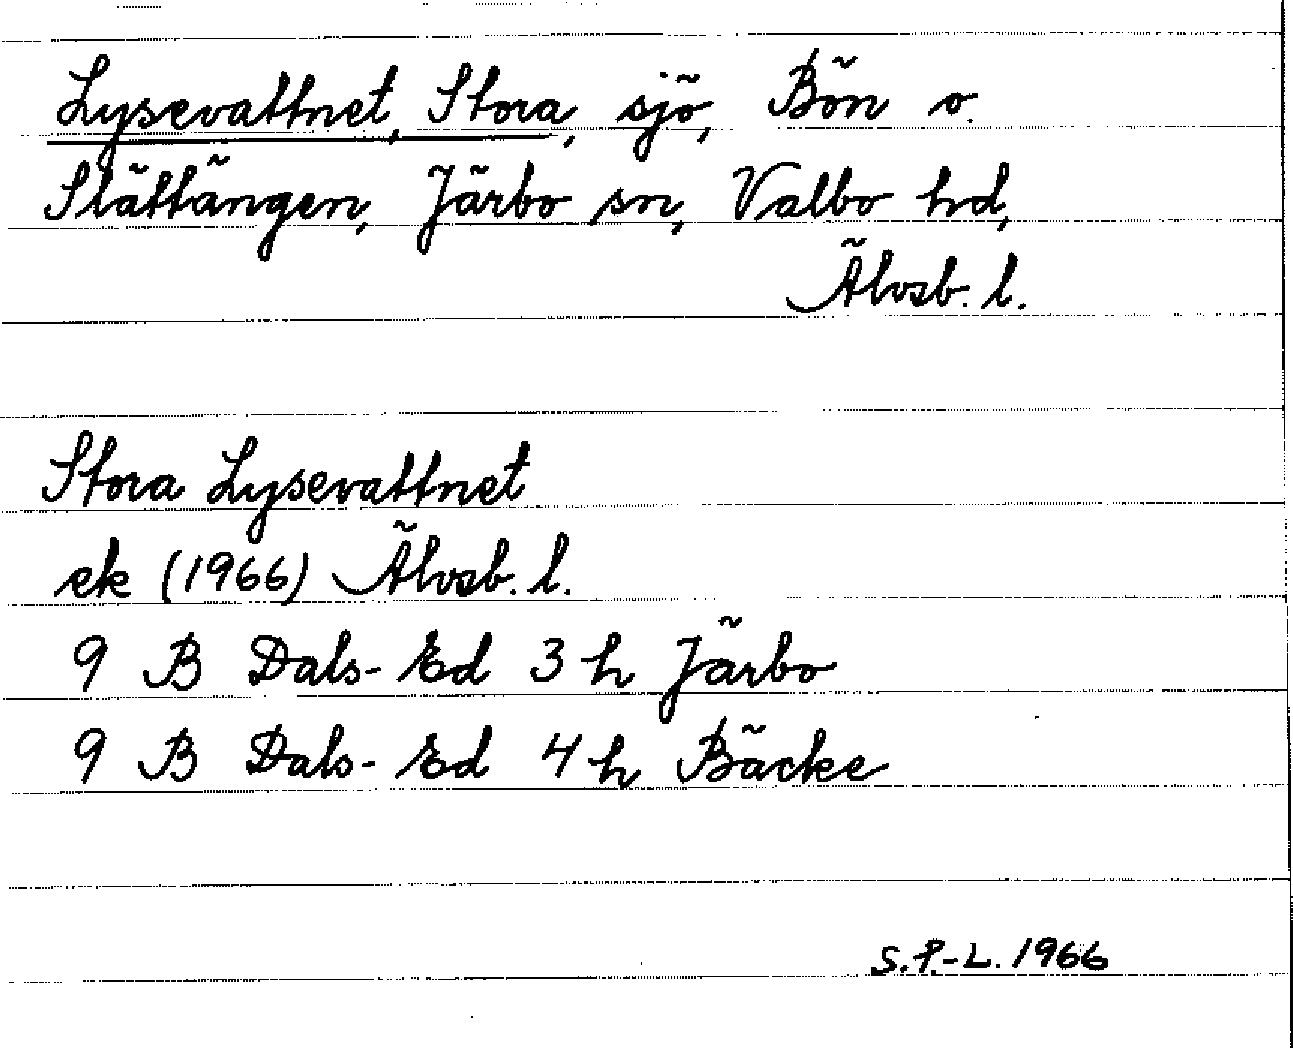 Lysevattnet, Stora, sjö, Bön o.
Slättängen, Järbo sn, Valbo hd,
Älvsb. l.
Stora Lysevattnet
ek (1966) Älvsb. l.
9 B Dals-Ed 3 h Järbo
9 B Dals-Ed 4 h Bäcke
S.P.-L. 1966